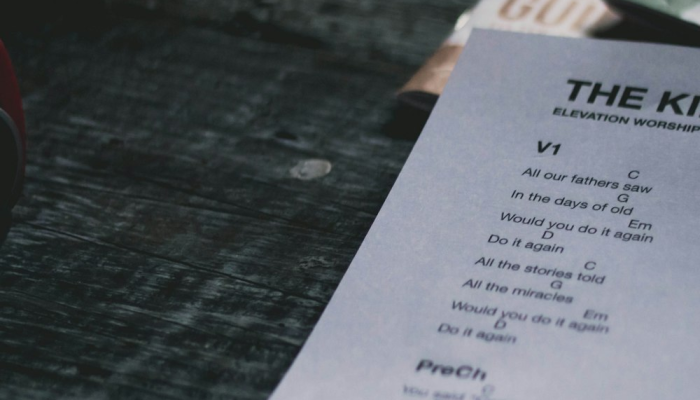 GOD
THE KI
ELEVATION WORSHIP
V1
C
All our fathers saw
G
In the days of old
Em
Would you do it again
D
Do it again
C
All the stories told
G
All the miracles
Em
Would you do it again
D
Do it again
PreCh
C
You said